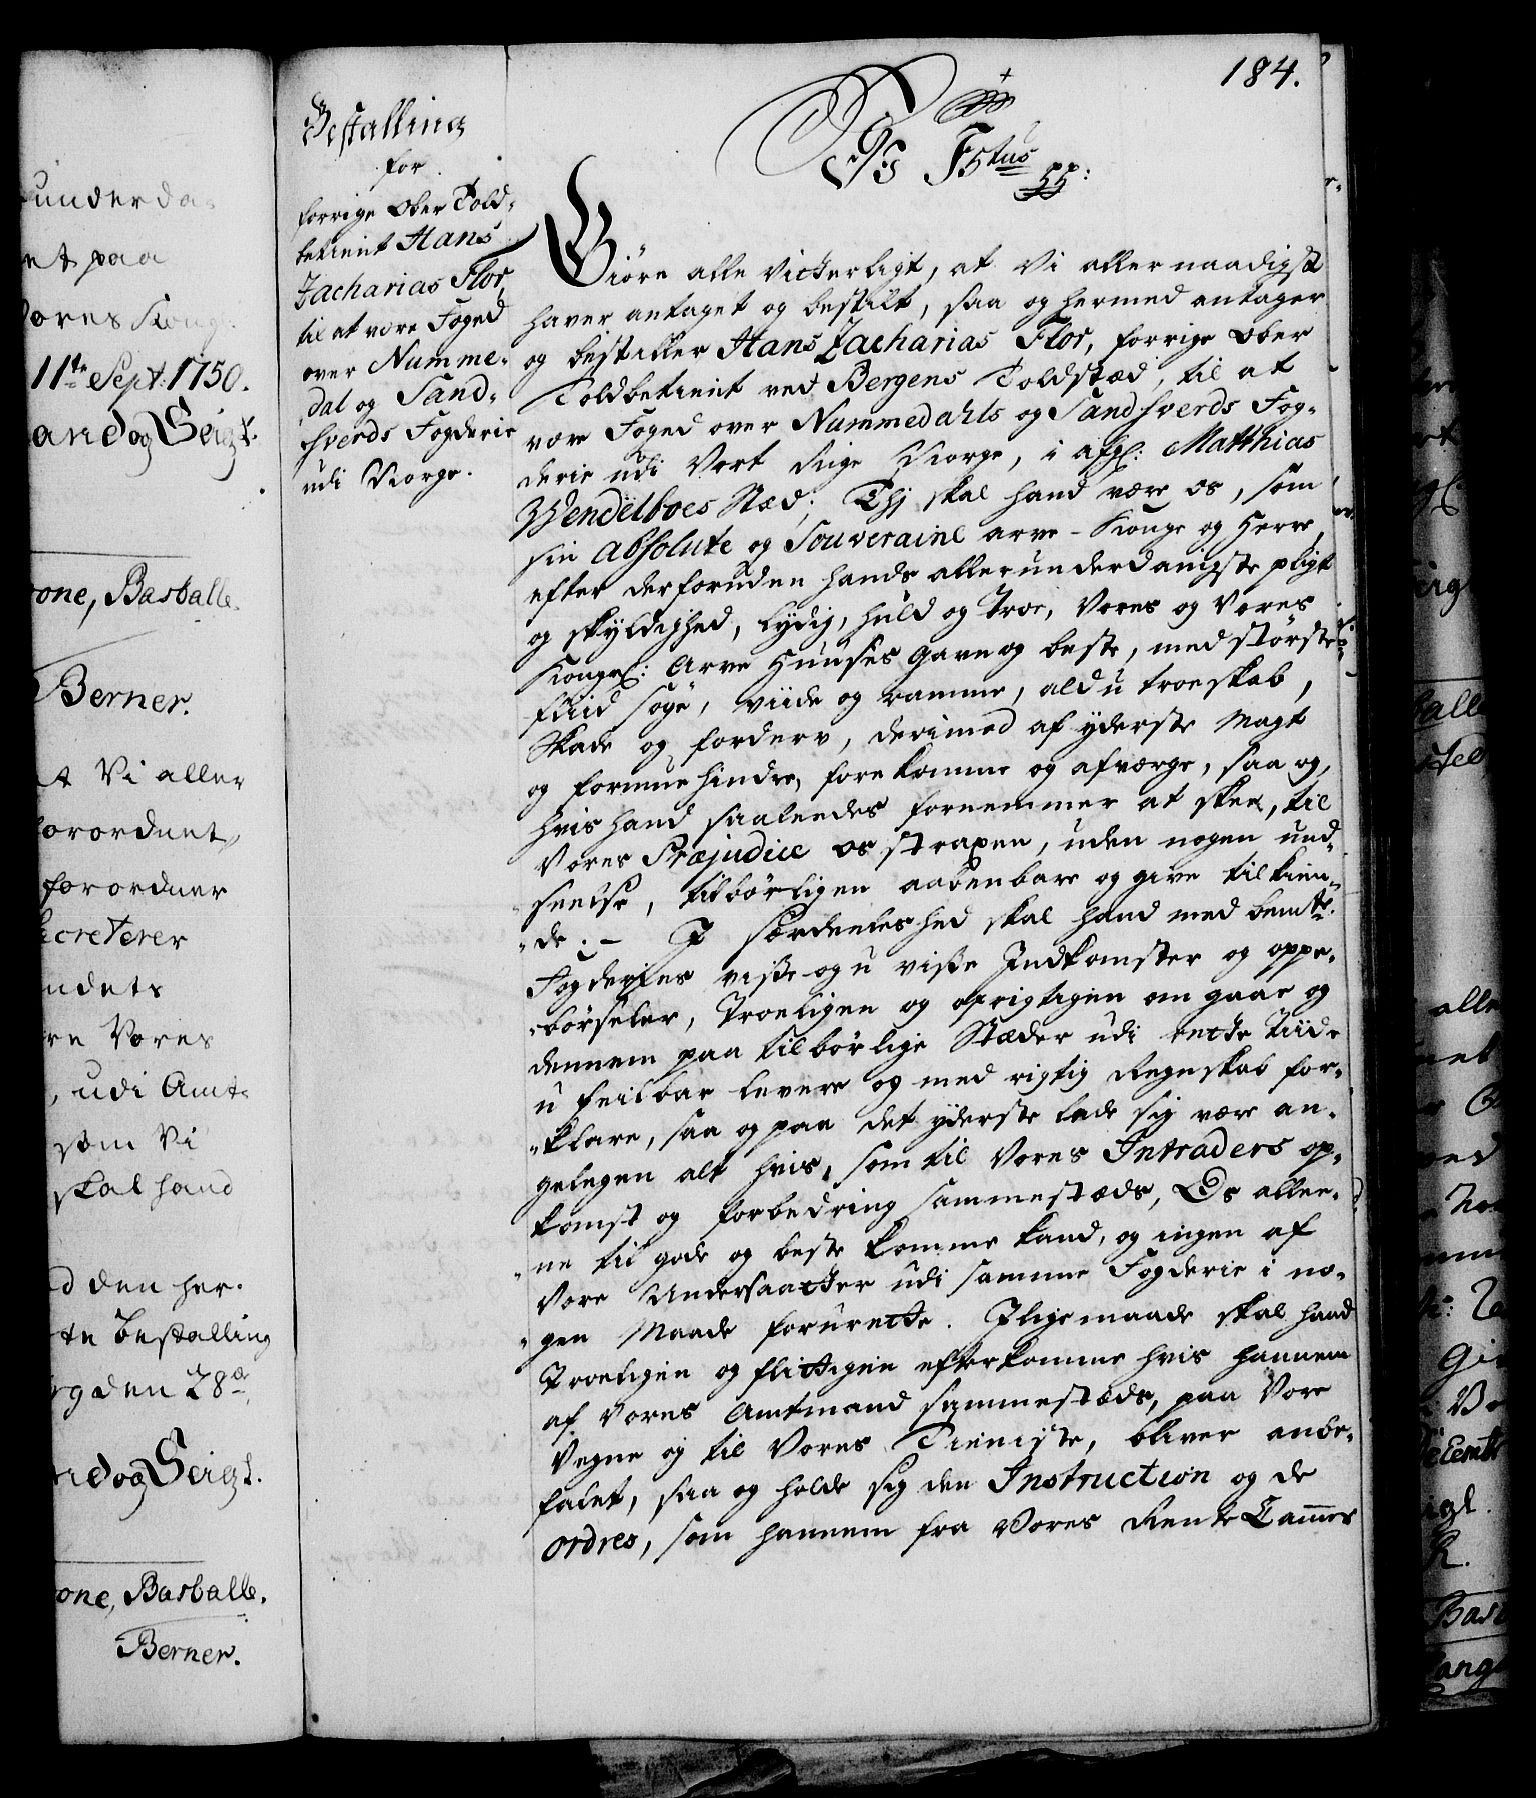 184.
Bestalling
for
forrige Ober Told-
betient Hans
Zacharias Flor,
til at være Foged
over Numme-
dal og Sand-
sverds Fogderie
udi Norge.
Ds F5tus
pp:
Giøre alle vitterligt, at Vi allernaadigst
haver antaget og bestilt, saa og hermed antager
og bestiller Hans Zacharias Flor, forrige Ober
Toldbetient ved Bergens Toldstæd, til at
være Foged over Nummedahls og Sandsverds Fog-
derie udi Vort Rige Norge, i afg: Matthias
Wendelboes Stæd; Thj skal hand være os, som
sin absolute og Souveraine arve-Konge og Herre,
efter derforuden hands allerunderdanigste pligt
og skyldighed, lydig, huld og troe, Vores og Vores
Kongel: Arve Huuses gavn og beste, med største
fliid søge, viide og ramme, ald utroeskab,
Skade og forderv, derimod af yderste Magt
og formue hindre, forekomme og afværge, saa og,
hvis hand saaleedes fornemmer at skee, til
Vores Præjudice os straxen, uden nogen und-
seelse, tilbørligen aabenbare og give tilkien-
de. - I særdeleshed skal hand med bemte
Fogderies visse og uvisse Indkomster og oppe-
børseler, troeligen og oprigtigen omgaae og
dennem paa tilbørlige Stæder udi rette Tiide
ufeilbar levere og med rigtig Regnskab for-
klare, saa og paa det yderste lade sig være an-
gelegen alt hvis, som til Vores Intraders op-
komst og forbedring sammestæds, Os allee-
ne til gode og beste komme kand, og ingen af
Vore Undersaatter udi samme Fogderie i no-
gen Maade forurette. Iligemaade skal hand
troeligen og flittigen efterkomme hvis hannem
af Vores Amtmand sammestæds, paa Vore
Vegne og til Vores Tieniste, bliver anbe-
falet, saa og holde sig den Instruction og de
ordres, som hannem fra Vores Rente Cammer
underda
et paa
Vores Kong
11te Sept: 1750.
and og Seigl.
one, Basballe.
Berner.
t Vi aller
forordnet,
forordner
Secreterer
ndets
re Vores
, udi Amt-
som Vi
skal hand
d den her-
te Bestalling
rg den 28de
nd og Seigl.
one, Basballe.
Berner.